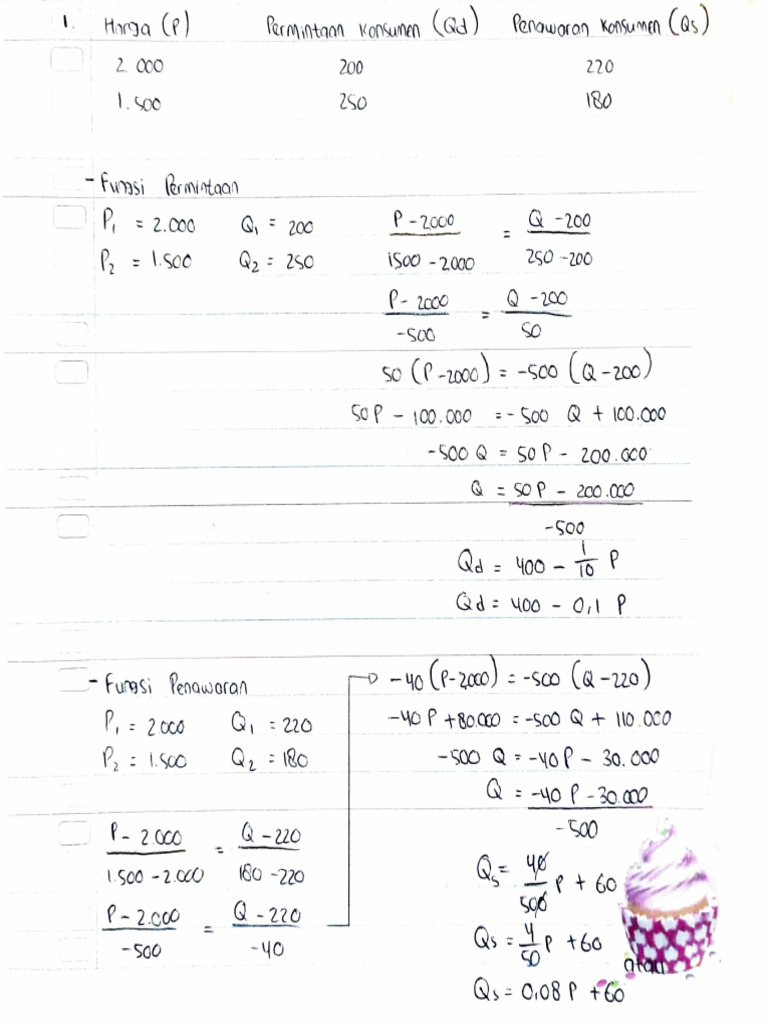 1. Harga (P) Permintaan Konsumen (Qd) Penawaran Konsumen (Qs)
2.000 200 220
1.500 250 180
- Fungsi Permintaan
P₁ = 2.000 Q₁ = 200
P₂ = 1.500 Q₂ = 250
P - 2000 / 1500 - 2000 = Q - 200 / 250 - 200
P - 2000 / -500 = Q - 200 / 50
50 (P - 2000) = -500 (Q - 200)
50P - 100.000 = - 500 Q + 100.000
-500 Q = 50 P - 200.000
Q = 50 P - 200.000 / -500
Qd = 400 - 1/10 P
Qd = 400 - 0,1 P
- Fungsi Penawaran
P₁ = 2000 Q₁ = 220
P₂ = 1.500 Q₂ = 180
P - 2.000 / 1.500 - 2.000 = Q - 220 / 180 - 220
P - 2.000 / -500 = Q - 220 / -40
-40 (P - 2000) = -500 (Q - 220)
-40 P + 80.000 = -500 Q + 110.000
-500 Q = -40 P - 30.000
Q = -40 P - 30.000 / -500
Qs = 40/500 P + 60
Qs = 4/50 P + 60
atau
Qs = 0,08 P + 60